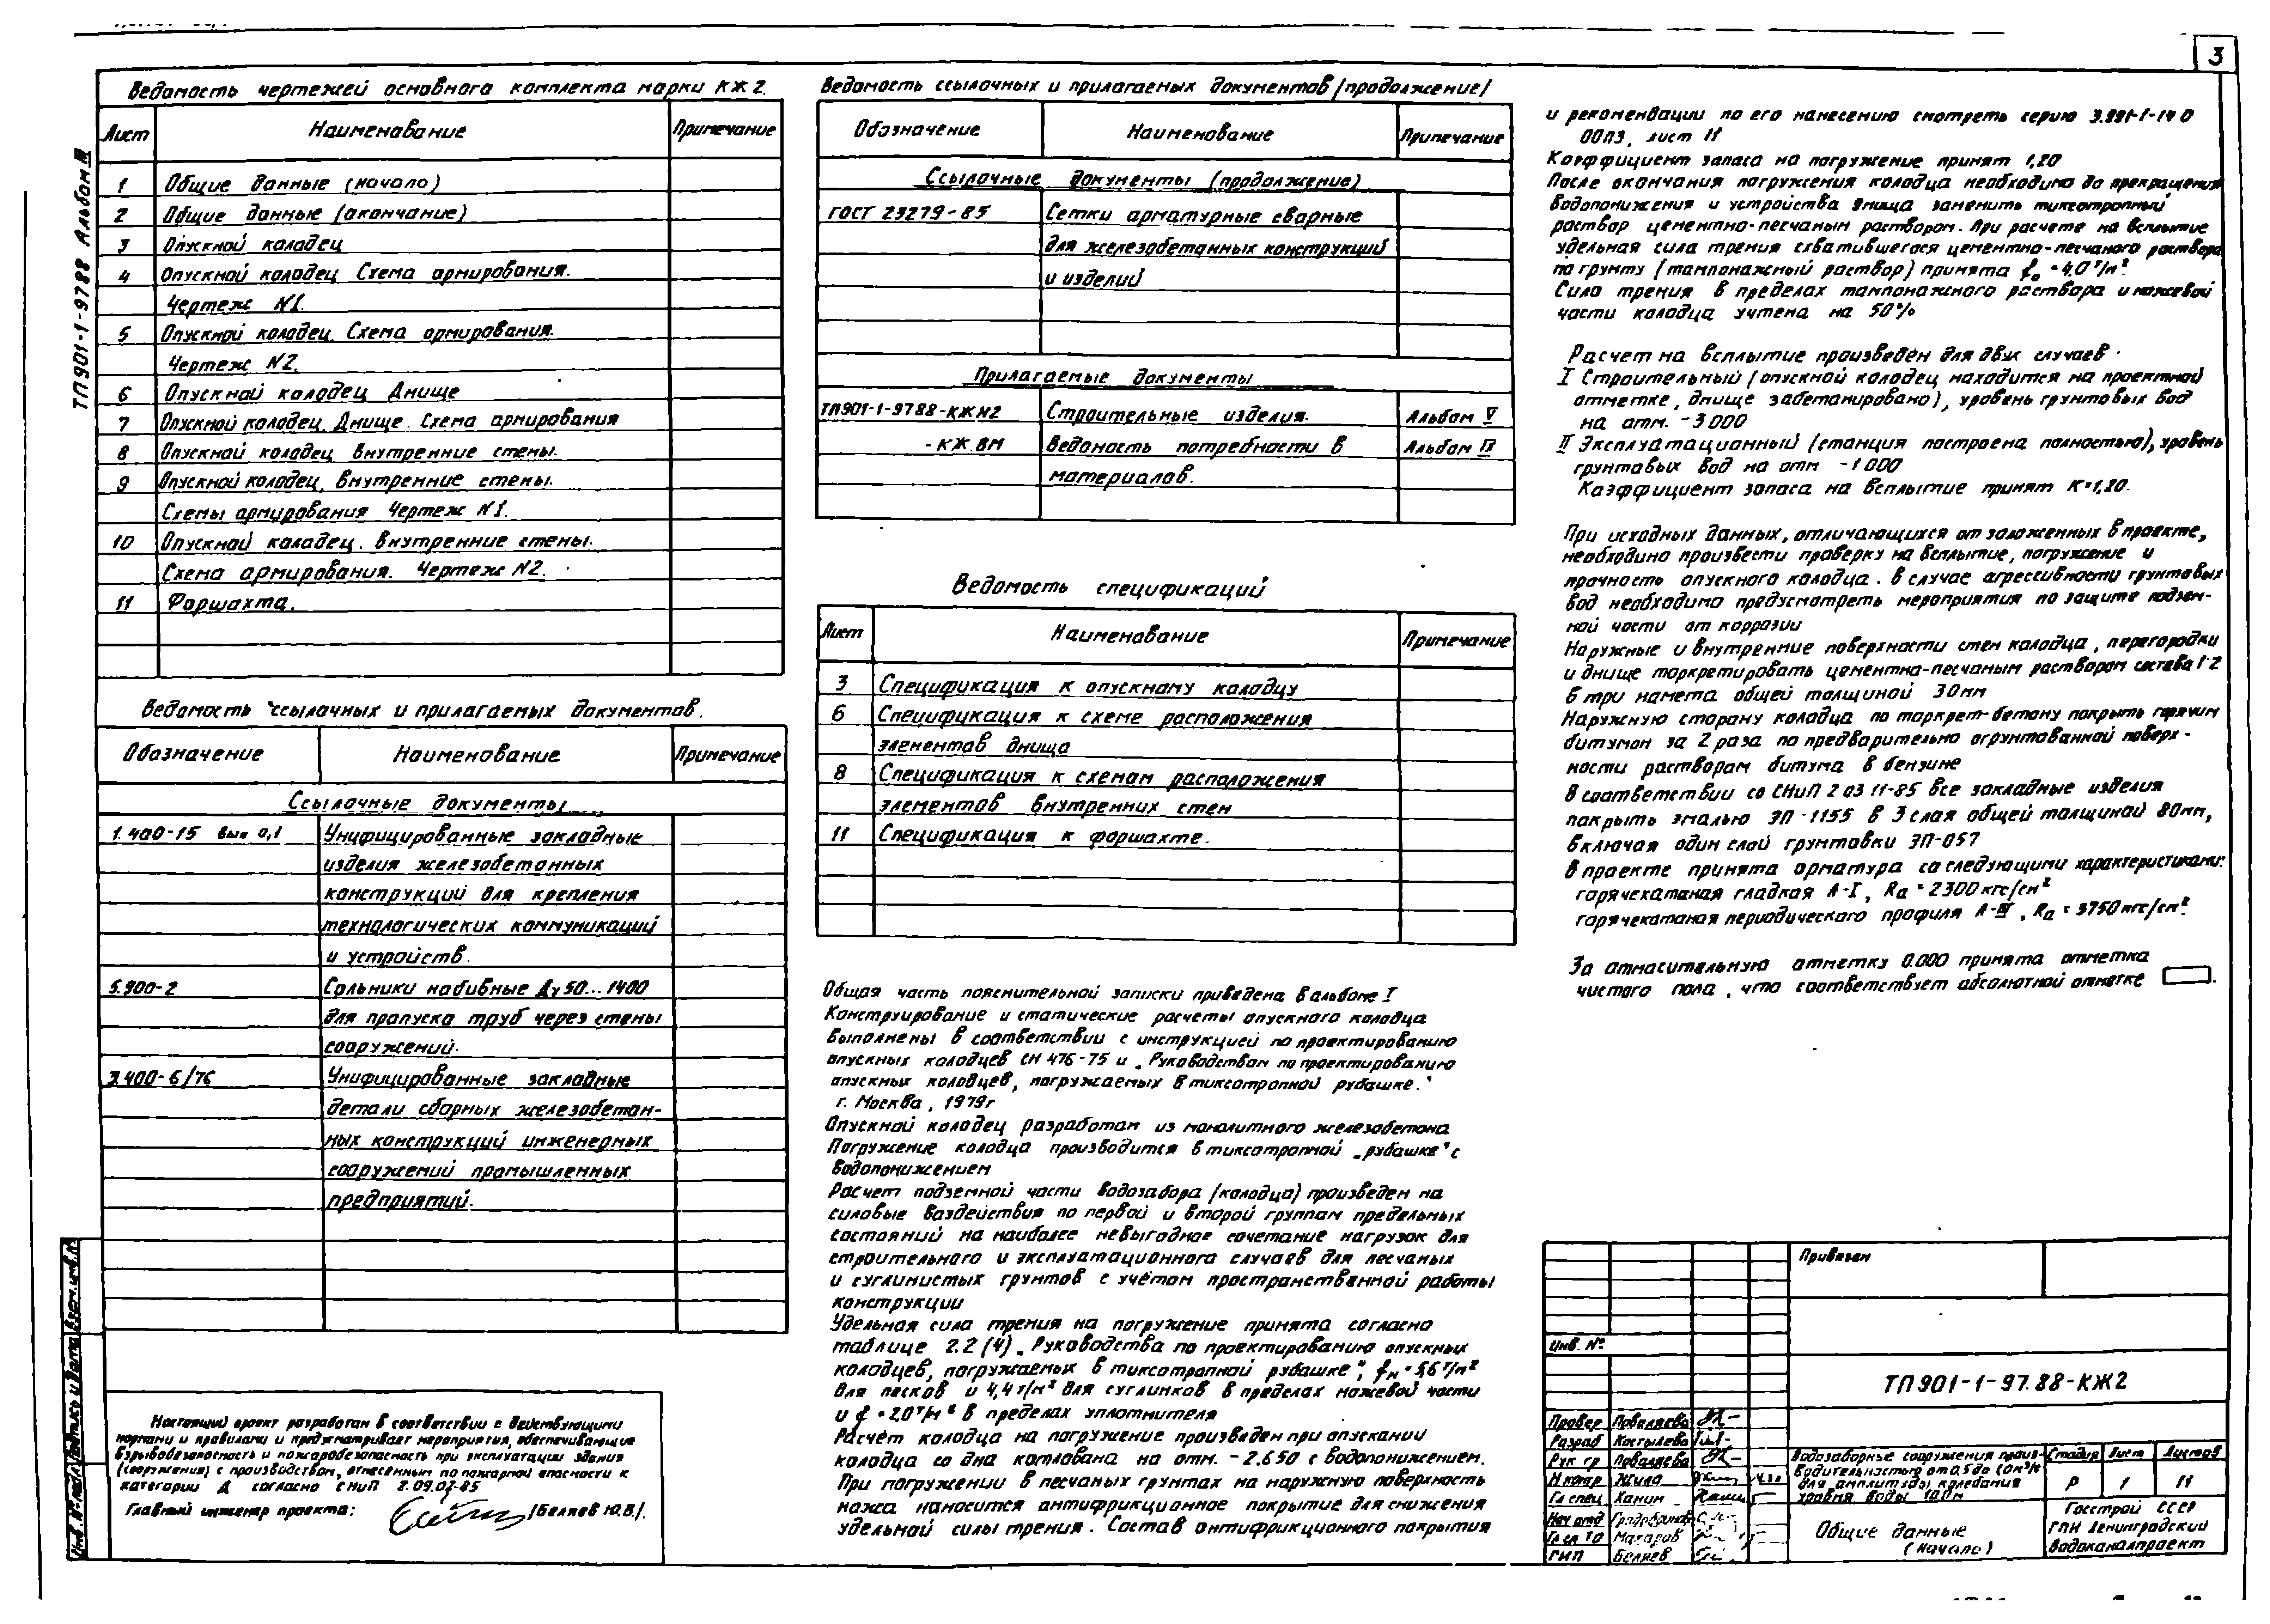 3
ТП901-1-97 88 Альбом III
Ведомость чертежей основного комплекта марки КЖ2.
Лист Наименование Примечание
1 Общие данные (начало)
2 Общие данные (окончание)
3 Опускной колодец
4 Опускной колодец Схема армирования.
Чертеж N1.
5 Опускной колодец. Схема армирования.
Чертеж N2.
6 Опускной колодец Днище
7 Опускной колодец. Днище. Схема армирования
8 Опускной колодец внутренние стены.
9 Опускной колодец, внутренние стены.
Схемы армирования Чертеж N1.
10 Опускной колодец. внутренние стены.
Схема армирования. Чертеж N2.
11 Форшахта.
Ведомость ссылочных и прилагаемых документов.
Обозначение Наименование Примечание
Ссылочные документы
1.400-15 вып 0,1 Унифицированные закладные
изделия железобетонных
конструкций для крепления
технологических коммуникаций
и устройств.
5.900-2 Сальники набивные Ду50...1400
для пропуска труб через стены
сооружений.
3.400-6/76 Унифицированные закладные
детали сборных железобетон-
ных конструкций инженерных
сооружений промышленных
предприятий.
Настоящий проект разработан в соответствии с действующими
нормами и правилами и предусматривает мероприятия, обеспечивающие
взрывобезопасность и пожаробезопасность при эксплуатации здания
(сооружения) с производством, отнесенным по пожарной опасности к
категории Д согласно СНиП 2.09.02-85
Главный инженер проекта: /Беляев Ю.В./.
Ведомость ссылочных и прилагаемых документов /продолжение/
Обозначение Наименование Примечание
Ссылочные документы (продолжение)
ГОСТ 23279-85 Сетки арматурные сварные
для железобетонных конструкций
и изделий
Прилагаемые документы
ТП901-1-97 88-КЖИ2 Строительные изделия. Альбом V
-КЖ.ВМ Ведомость потребности в Альбом IX
материалов.
Ведомость спецификаций
Лист Наименование Примечание
3 Спецификация к опускному колодцу
6 Спецификация к схеме расположения
элементов днища
8 Спецификация к схемам расположения
элементов внутренних стен
11 Спецификация к форшахте.
Общая часть пояснительной записки приведена в альбоме I
Конструирование и статические расчеты опускного колодца
выполнены в соответствии с инструкцией по проектированию
опускных колодцев СН 476-75 и „Руководством по проектированию
опускных колодцев, погружаемых в тиксотропной рубашке."
г. Москва, 1979г
Опускной колодец разработан из монолитного железобетона
Погружение колодца производится в тиксотропной „рубашке" с
водопонижением
Расчет подземной части водозабора (колодца) произведен на
силовые воздействия по первой и второй группам предельных
состояний на наиболее невыгодное сочетание нагрузок для
строительного и эксплуатационного случаев для песчаных
и суглинистых грунтов с учётом пространственной работы
конструкции
Удельная сила трения на погружение принята согласно
таблице 2.2 (4) „Руководства по проектированию опускных
колодцев, погружаемых в тиксотропной рубашке", fн = 5,6 т/м²
для песков и 4,4 т/м² для суглинков в пределах ножевой части
и f = 2.0 т/м² в пределах уплотнителя
Расчёт колодца на погружение произведен при опускании
колодца со дна котлована на отм. -2.650 с водопонижением.
При погружении в песчаных грунтах на наружную поверхность
ножа наносится антифрикционное покрытие для снижения
удельной силы трения. Состав антифрикционного покрытия
и рекомендации по его нанесению смотреть серию 3.901-1-14 0
00ПЗ, лист 11
Коэффициент запаса на погружение принят 1,20
После окончания погружения колодца необходимо до прекращения
водопонижения и устройства днища заменить тиксотропный
раствор цементно-песчаным раствором. При расчете на всплытие
удельная сила трения схватившегося цементно-песчаного раствора
по грунту (тампонажный раствор) принята f₀ = 4,0 т/м².
Сила трения в пределах тампонажного раствора и ножевой
части колодца учтена на 50%
Расчет на всплытие произведен для двух случаев.
I Строительный (опускной колодец находится на проектной
отметке, днище забетонировано), уровень грунтовых вод
на отм. -3 000
II Эксплуатационный (станция построена полностью), уровень
грунтовых вод на отм -1 000
Коэффициент запаса на всплытие принят К=1,20.
При исходных данных, отличающихся от заложенных в проекте,
необходимо произвести проверку на всплытие, погружение и
прочность опускного колодца. В случае агрессивности грунтовых
вод необходимо предусмотреть мероприятия по защите подзем-
ной части от коррозии
Наружные и внутренние поверхности стен колодца, перегородки
и днище торкретировать цементно-песчаным раствором состава 1:2
в три намета общей толщиной 30мм
Наружную сторону колодца по торкрет-бетону покрыть горячим
битумом за 2 раза по предварительно огрунтованной поверх-
ности раствором битума в бензине
В соответствии со СНиП 2 03 11-85 все закладные изделия
покрыть эмалью ЭП-1155 в 3 слоя общей толщиной 80мм,
включая один слой грунтовки ЭП-057
В проекте принята арматура со следующими характеристиками:
горячекатаная гладкая А-I, Rа = 2300 кгс/см²
горячекатаная периодического профиля А-III, Rа = 3750 кгс/см².
За относительную отметку 0.000 принята отметка
чистого пола, что соответствует абсолютной отметке
Привязан
Инв. №
ТП901-1-97.88-КЖ2
Провер Поваляева
Разраб Костылева
Рук гр Поваляева
Н контр Жила
Гл спец Ханин
Нач отд
Гл сп ТО Макаров
ГИП Беляев
Водозаборные сооружения произ-
водительностью от 0.5 до 1.0 м³/с
для амплитуды колебания
уровня воды 10.0м
Стадия Лист Листов
Р 1 11
Общие данные
(начало)
Госстрой СССР
ГПИ Ленинградский
Водоканалпроект
Инв. № подл Подпись и дата Взам. инв. №